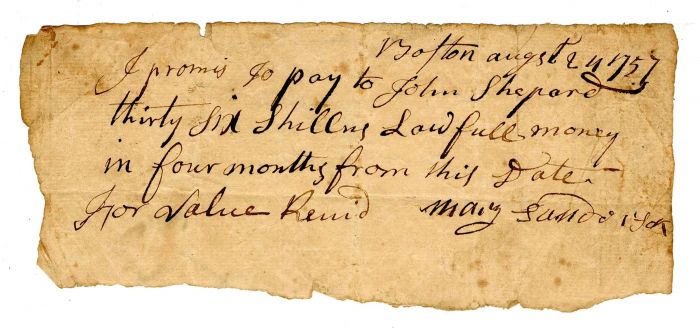 Boston augst 24 1757
I promis to pay to John Shepard
thirty Six Shillns Lawfull money
in four months from this Date
For Value Reuid mary